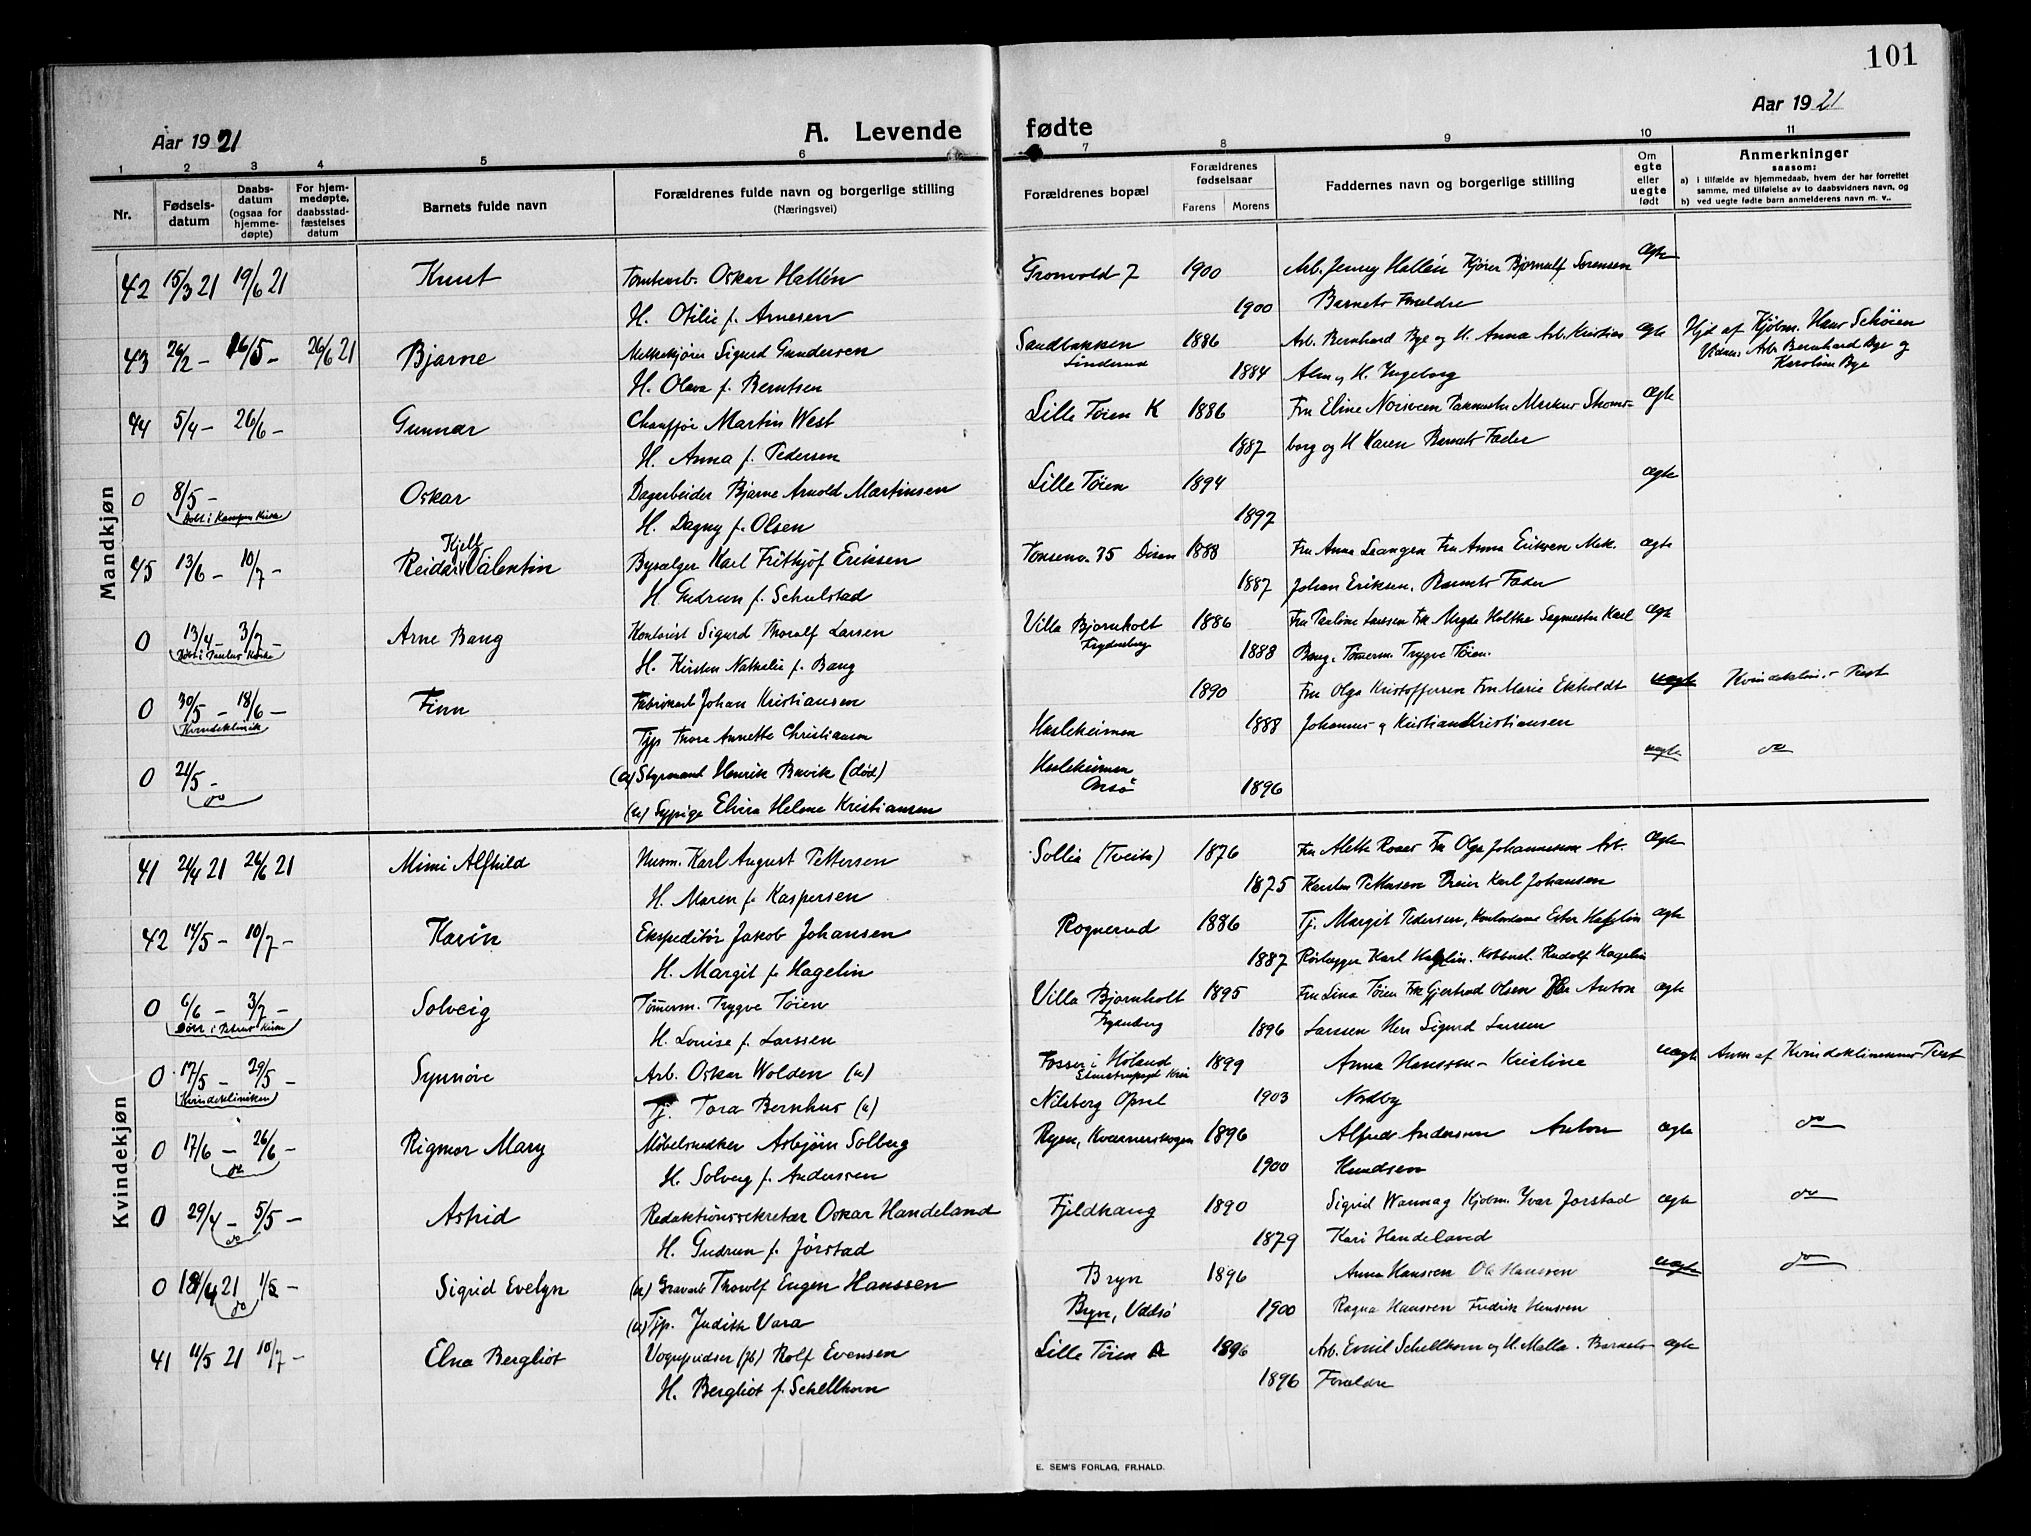 101
Aar 1921
A. Levende fødte
Aar 1921
1 2 3 4 5 6 7 8 9 10 11
Nr.
Fødsels-datum
Daabs-datum (ogsaa for hjemme-døpte)
For hjem-medøpte, daabsstad-fæstelses datum
Barnets fulde navn
Forældrenes fulde navn og borgerlige stilling (Næringsvei)
Forældrenes bopæl
Forældrenes fødselsaar
Farens Morens
Faddernes navn og borgerlige stilling
Om egte eller uegte født
Anmerkninger
saasom:
a) i tilfælde av hjemmedaab, hvem der har forrettet samme, med tilføielse av to daabsvidners navn, og
b) ved uegte fødte barn anmelderens navn m. v..
Mandkjøn
42 15/3 21 19/6 21 Knut Tomtearb. Oskar Hallén Gronvold 7 1900 Arb. Jenny Hallén Kjører Bjornulf Sorensen ægte
H. Otilie f. Arnesen 1900 Barnets Forældre
43 26/2 - 16/5 - 26/6 21 Bjarne Melkekjører Sigurd Gundersen Sandbakken Linderud 1886 Arb. Bernhard Bye og H. Anna Arb. Kristian ægte Hjd af Kjøbm. Hans Schøien
H. Olava f. Berntsen 1884 Alm og H. Ingeborg Vidner Arb. Bernhard Bye og Karoline Bye
44 5/4 - 26/6 - Gunnar Chauffør Martin West Lille Tøien K 1886 Fru Eline Norsveen Markus Skoms- ægte
H. Anna f. Pedersen 1887 borg og H Karen Barnets Fader
0 8/5 - Oskar Dagarbeider Bjarne Arnold Martinsen Lille Tøien 1894 ægte
Døbt i Kampen Kirke H. Dagny f. Olsen 1897
45 13/6 - 10/7 - Reidar Kjell Valentin Bysælger Karl Fritkjof Eriksen Tonsenv. 75 Disen 1888 Fru Anna Leangen Fru Anna Eriksen Mek. ægte
H. Gudrun f. Schulstad 1887 Johan Eriksen, Barnets Fader
0 13/4 - 3/7 - Arne Bang Kontorist Sigurd Thoralf Larsen Villa Bjornholt Frydenberg 1886 Fru Larsen Frk Magda Holtke Sagmester Karl ægte
Døbt i Paulus Kirke H. Kirsten Nathalie f. Bang 1888 Bang, Tømerm. Trygve Tøien.
0 30/5 - 18/6 - Finn Fabrikarb Johan Kristiansen 1890 Fru Olga Kristoffersen Fru Marie Ekholdt uegte Kvindeklin. Prest
Kvindeklinik Tjp Thora Annette Christiansen Hasleheimen 1888 Johannes og Kristian Kristiansen
0 21/5 - (a) Styrmand Henrik Buvik (død) Hasleheimen uegte do
do (u) Sypige Elvira Helene Kristiansen Onsø 1896
Kvindekjøn
41 24/4 21 26/6 21 Mimi Alfhild Murm. Karl August Pettersen Sollia (Tveita) 1876 Fru Alette Roaas Fru Olga Johannessen Arb. ægte
H. Maren f. Kaspersen 1875 Karsten Pettersen Dreier Karl Johansen
42 14/5 - 10/7 - Karin Ekspeditør Jakob Johansen Rognerud 1886 Tj. Margit Pedersen, Kontordame Ester Hagelin ægte
H. Margit f. Hagelin 1887 Rørlægger Karl Hagelin. Kobbersl. Rudolf Hagelin
0 6/6 - 3/7 - Solveig Tømerm. Trygve Tøien Villa Bjornholt Frydenberg 1895 Fru Lina Tøien Frk Gjertrud Olsen Anton ægte
Døbt i Petrus Kirke H. Louise f. Larssen 1896 Larssen Herr Sigurd Larssen
0 17/5 - 29/5 - Synnøve Arb. Oskar Wolden (u) Fosser i Høland 1899 Anna Hanssen - Kristine uegte Anm af Kvindeklinikens Prest
Kvindekliniken Tj. Tora Bernhus (u) Nilsberg Opsal 1903 Nordby
0 17/6 - 26/6 - Rigmor Mary Møbelsnedker Asbjørn Solberg Ryen, Kværnerskogen 1896 Alfred Andersen Anton ægte do
do H. Solveig f. Anderssen 1900 Knudsen
0 29/4 - 5/5 - Astrid Redaktionssekretær Oskar Handeland Fjeldhaug 1890 Sigrid Wannag Kjobm. Yvar Jorstad ægte do
do H. Gudrun f. Jørstad 1879 Kari Handeland
0 18/4 21 1/5 - Sigrid Evelyn (u) Gravarb Thorolf Eugen Hanssen Bryn 1896 Anna Hanssen Ole Hanssen uegte do
do (u) Tjp. Judith Vara Bryn, Vadsø 1900 Ragna Hansen Fredrik Hansen
41 11/5 21 10/7 - Elna Bergliot Vognpudser (jb) Rolf Evensen Lille Tøien A 1896 Arb. Emil Schellhorn og H. Malla. Barnets ægte
H. Bergliot f. Schellhorn 1896 Forældre
E. SEM'S FORLAG, FR.HALD.